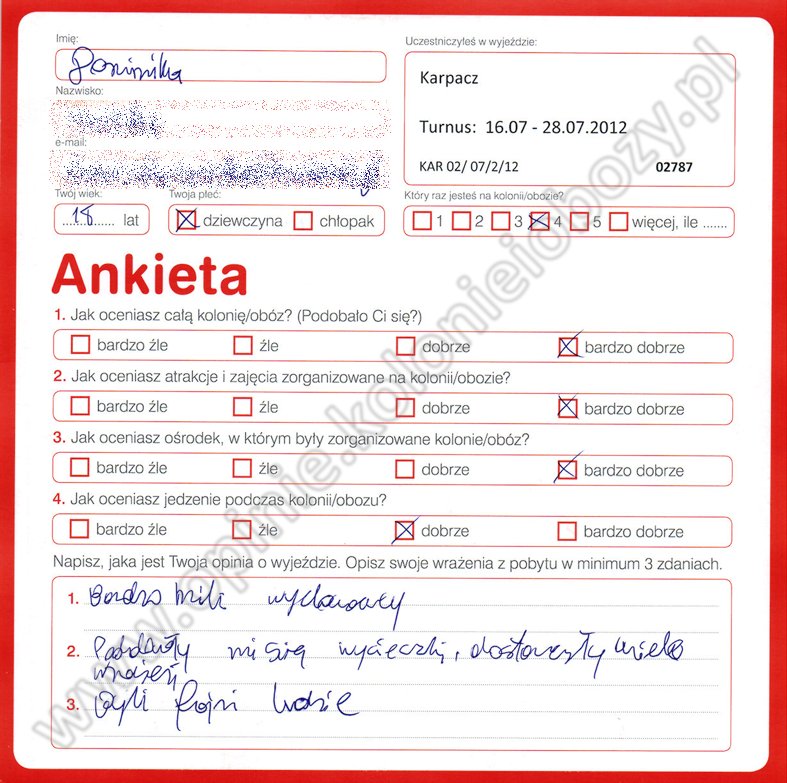 Imię:
Dominika
Uczestniczyłeś w wyjeździe:
Karpacz
Turnus: 16.07 - 28.07.2012
KAR 02/ 07/2/12 02787
Nazwisko:
e-mail:
Twój wiek:
18 lat
Twoja płeć:
dziewczyna chłopak
Który raz jesteś na kolonii/obozie?
1 2 3 4 5 więcej, ile .......
Ankieta
1. Jak oceniasz całą kolonię/obóz? (Podobało Ci się?)
bardzo źle źle dobrze bardzo dobrze
2. Jak oceniasz atrakcje i zajęcia zorganizowane na kolonii/obozie?
bardzo źle źle dobrze bardzo dobrze
3. Jak oceniasz ośrodek, w którym były zorganizowane kolonie/obóz?
bardzo źle źle dobrze bardzo dobrze
4. Jak oceniasz jedzenie podczas kolonii/obozu?
bardzo źle źle dobrze bardzo dobrze
Napisz, jaka jest Twoja opinia o wyjeździe. Opisz swoje wrażenia z pobytu w minimum 3 zdaniach.
1. Bardzo mili wychowawcy
2. Podobały mi się wycieczki, dostarczyły wiele
wrażeń
3. Byli fajni ludzie
www.opinie.kolonieiobozy.pl